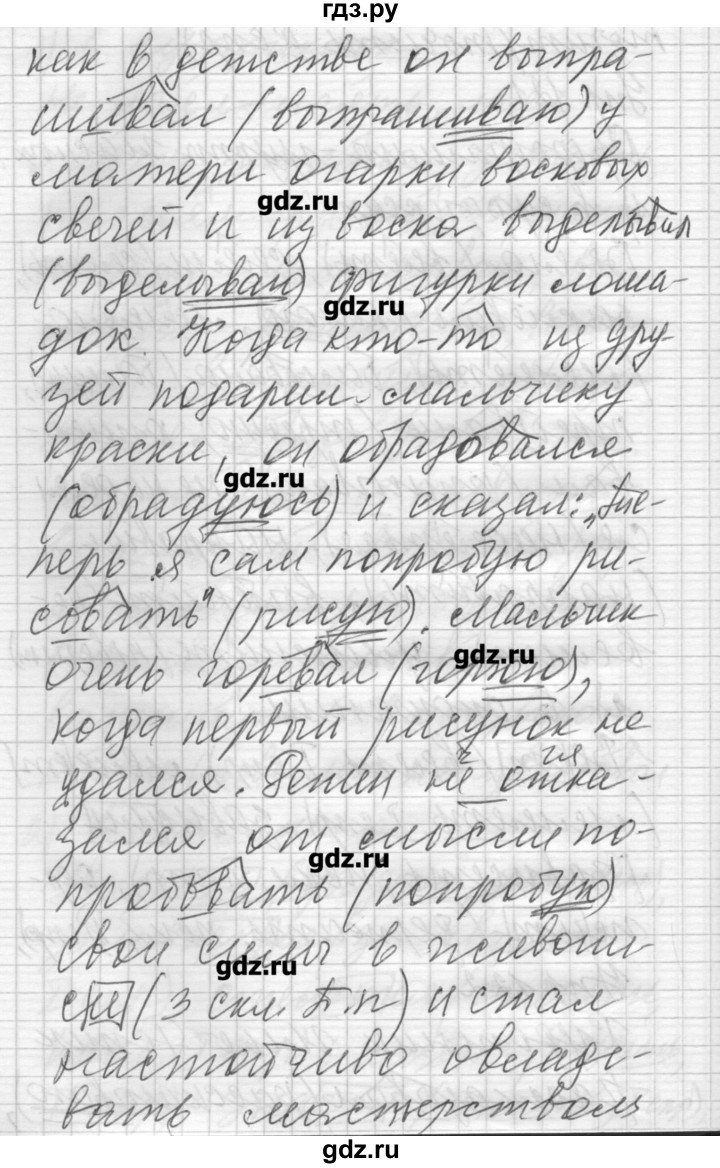 гдз.ру
как в детстве он выпра-
шивал (выпрашиваю) у
матери огарки восковых
gdz.ru
свечей и из воска выделывал
(выделываю) фигурки лоша-
gdz.ru
док. Когда кто-то из дру-
зей подарил мальчику
краски, он обрадовался
gdz.ru
(обрадуюсь) и сказал: „Те-
перь я сам попробую ри-
совать" (рисую). Мальчик
gdz.ru
очень горевал (горюю),
когда первый рисунок не
удался. Репин не отка-
зался от мысли по-
gdz.ru
пробовать (попробую)
свои силы в живопи-
gdz.ru
си (3 скл. П.п) и стал
настойчиво овладе-
вать мастерством
gdz.ru